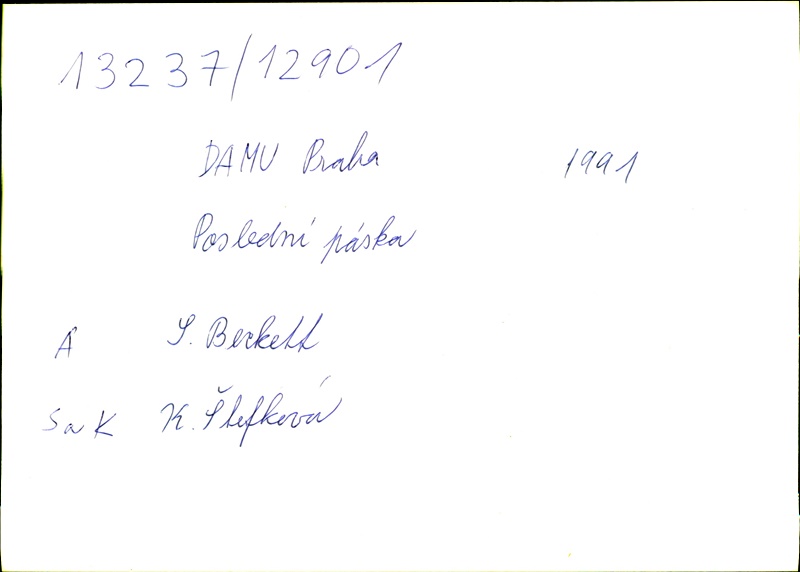 13237/12901
DAMU Praha 1991
Poslední páska
A S. Beckett
S a K K. Štefková